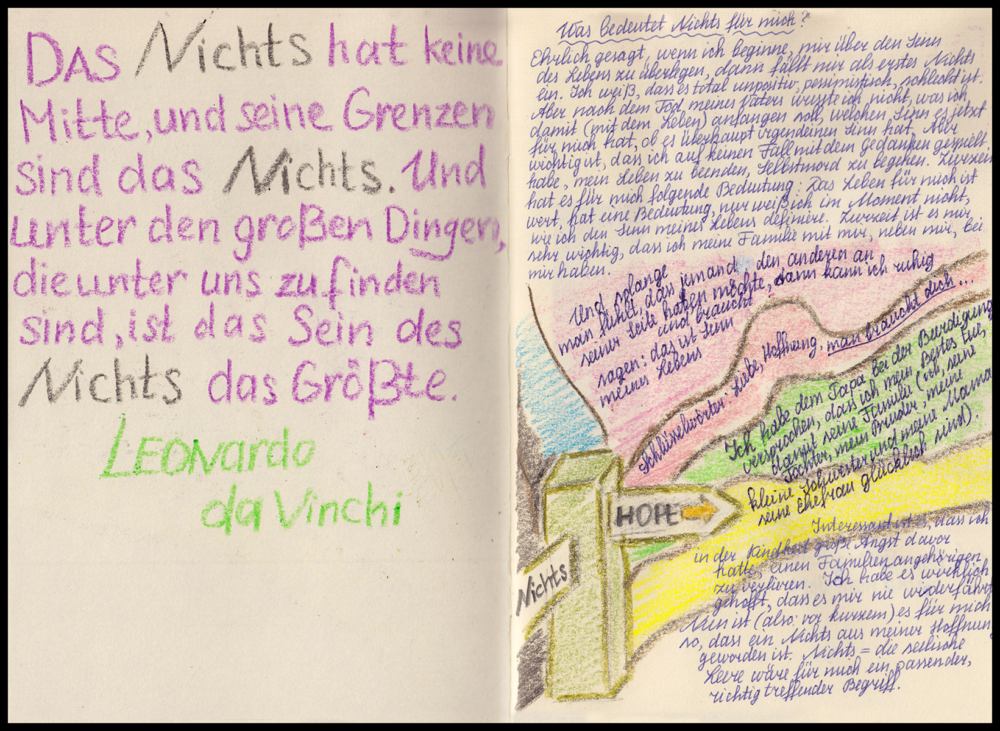 Das Nichts hat keine
Mitte, und seine Grenzen
sind das Nichts. Und
unter den großen Dingen,
die unter uns zu finden
sind, ist das Sein des
Nichts das Größte.
Leonardo
da Vinchi
Was bedeutet Nichts für mich?
Ehrlich gesagt, wenn ich beginne, mir über den Sinn
des Lebens zu überlegen, dann fällt mir als erstes Nichts
ein. Ich weiß, dass es total unpositiv, pessimistisch, schlecht ist.
Aber nach dem Tod meines Vaters wusste ich nicht, was ich
damit (mit dem Leben) anfangen soll, welchen Sinn es jetzt
für mich hat, ob es überhaupt irgendeinen Sinn hat. Aber
wichtig ist, dass ich auf keinen Fall mit dem Gedanken gespielt
habe, mein Leben zu beenden, Selbstmord zu begehen. Zurzeit
hat es für mich folgende Bedeutung: Das Leben für mich ist
wert, hat eine Bedeutung, nur weiß ich im Moment nicht,
wie ich den Sinn meines Lebens definiere. Zurzeit ist es mir
sehr wichtig, dass ich meine Familie mit mir, neben mir, bei
mir haben.
Und solange
man fühlt, dass jemand den anderen an
seiner Seite haben möchte, dann kann ich ruhig
und braucht
sagen: das ist Sinn
meines Lebens
Schlüsselwörter: Liebe, Hoffnung, man braucht dich...
Ich habe dem Papa bei der Beerdigung
versprochen, dass ich mein Bestes tue,
damit seine Familie (ich, seine
Tochter, mein Bruder, meine
kleine Schwester und meine Mama
seine Ehefrau glücklich sind).
HOPE
Nichts
Interessant ist es, dass ich
in der Kindheit große Angst davor
hatte, einen Familienangehörigen
zu verlieren. Ich habe es wirklich
gehofft, dass es mir nie widerfährt
Nun ist (also: vor kurzem) es für mich
so, dass ein Nichts aus meiner Hoffnun
geworden ist. Nichts = die seelische
Leere wäre für mich ein passender,
richtig treffender Begriff.